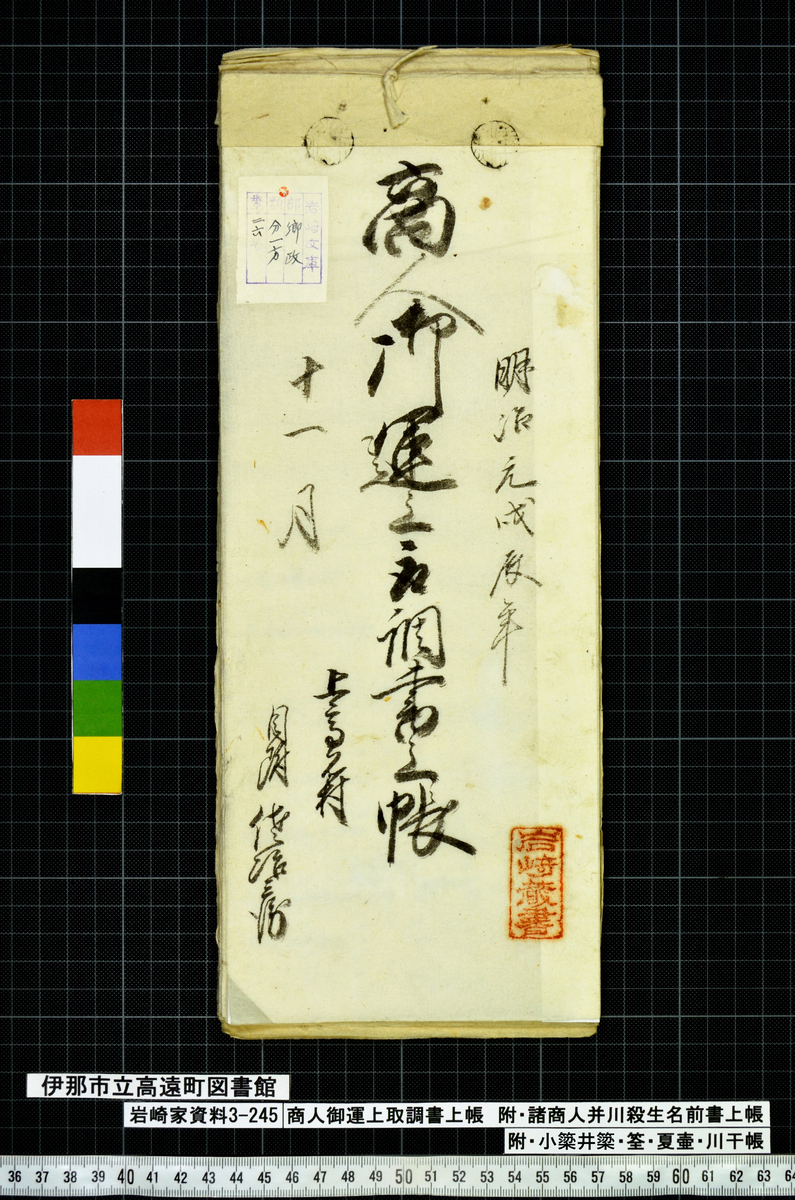 明治元戊辰年
商人御運上取調書上帳
十一月
目附
岩崎文庫
郷政
分一方
二六
岩崎蔵書
伊那市立高遠町図書館
岩崎家資料3-245
商人御運上取調書上帳 附・諸商人并川殺生名前書上帳
附・小簗井簗・筌・夏壷・川干帳
36 37 38 39 40 41 42 43 44 45 46 47 48 49 50 51 52 53 54 55 56 57 58 59 60 61 62 63 64